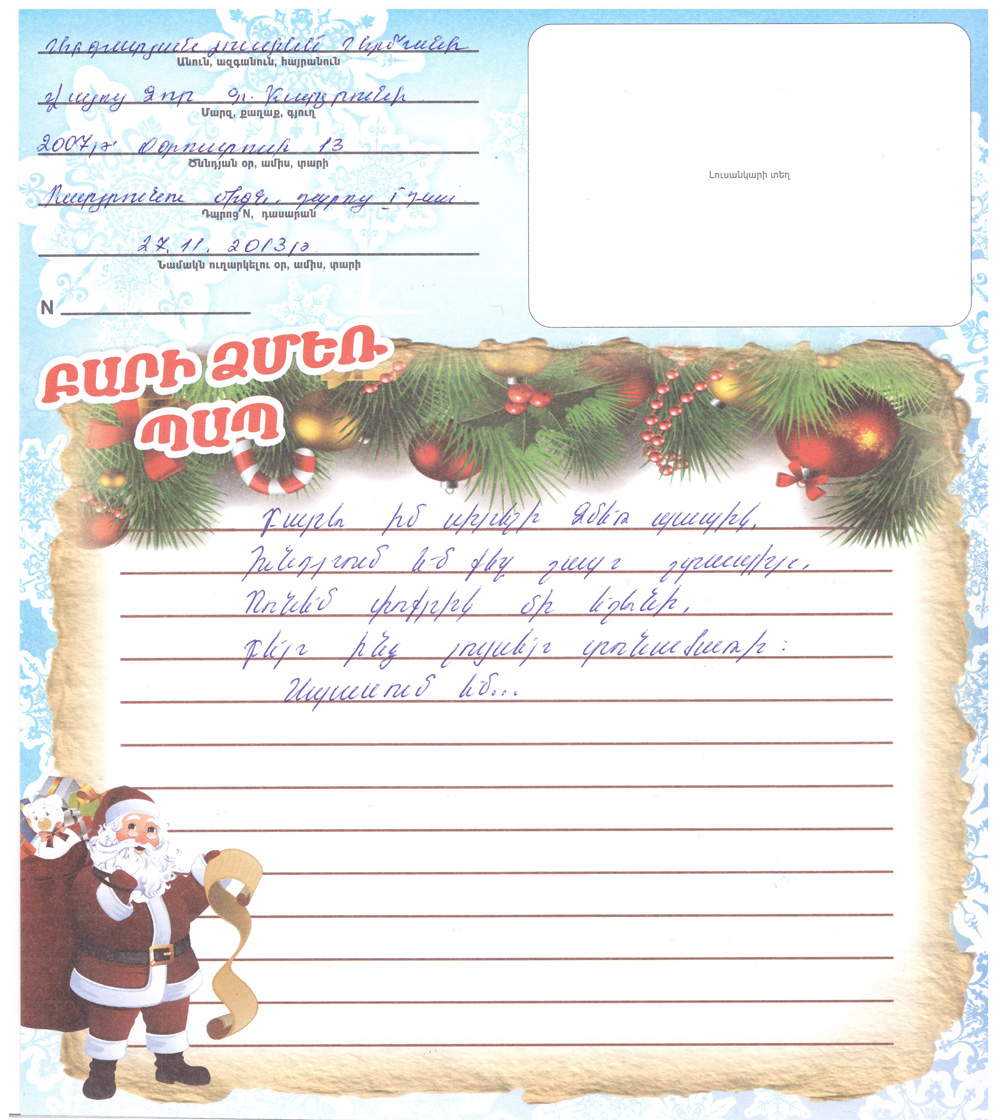 Անուն, ազգանուն, հայրանուն
Վայոց Ձոր գ.
Մարզ, քաղաք, գյուղ
2007թ. Օգոստոսի 13
Ծննդյան օր, ամիս, տարի
միջն. դպրոց I դաս.
Դպրոց N, դասարան
27. 11. 2013թ
Նամակն ուղարկելու օր, ամիս, տարի
N
Լուսանկարի տեղ
ԲԱՐԻ ՁՄԵՌ
ՊԱՊ
Բարև իմ սիրելի Ձմեռ պապիկ,
Խնդրում եմ քեզ շատ շտապիր,
Ունեմ փոքրիկ մի եղևնի,
Բեր ինձ լույսեր տոնածառի:
Սպասում եմ...